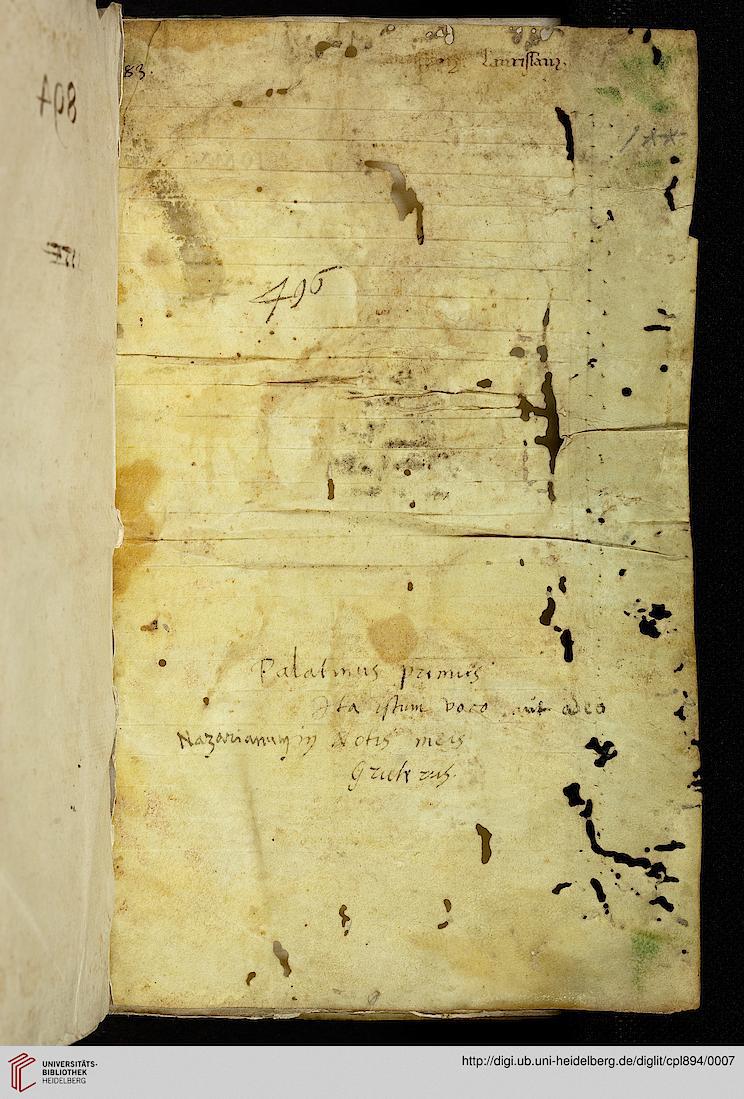 894
83.
Lauristan
1**
496
Palatinus primus
Ita istum voco aut adeo
Nazarianum in Notis meis
Gruterus.
UNIVERSITÄTS-
BIBLIOTHEK
HEIDELBERG
http://digi.ub.uni-heidelberg.de/diglit/cpl894/0007